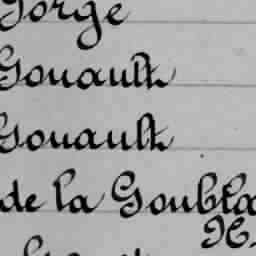 Gorge
Gouault
Gouault
de la Goubla
H.